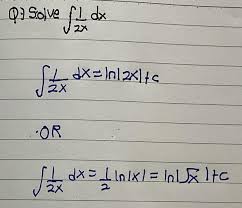 Q? Solve ∫ 1/2x dx
∫ 1/2x dx = ln|2x|+c
·OR
∫ 1/2x dx = 1/2 ln|x| = ln|√x|+c